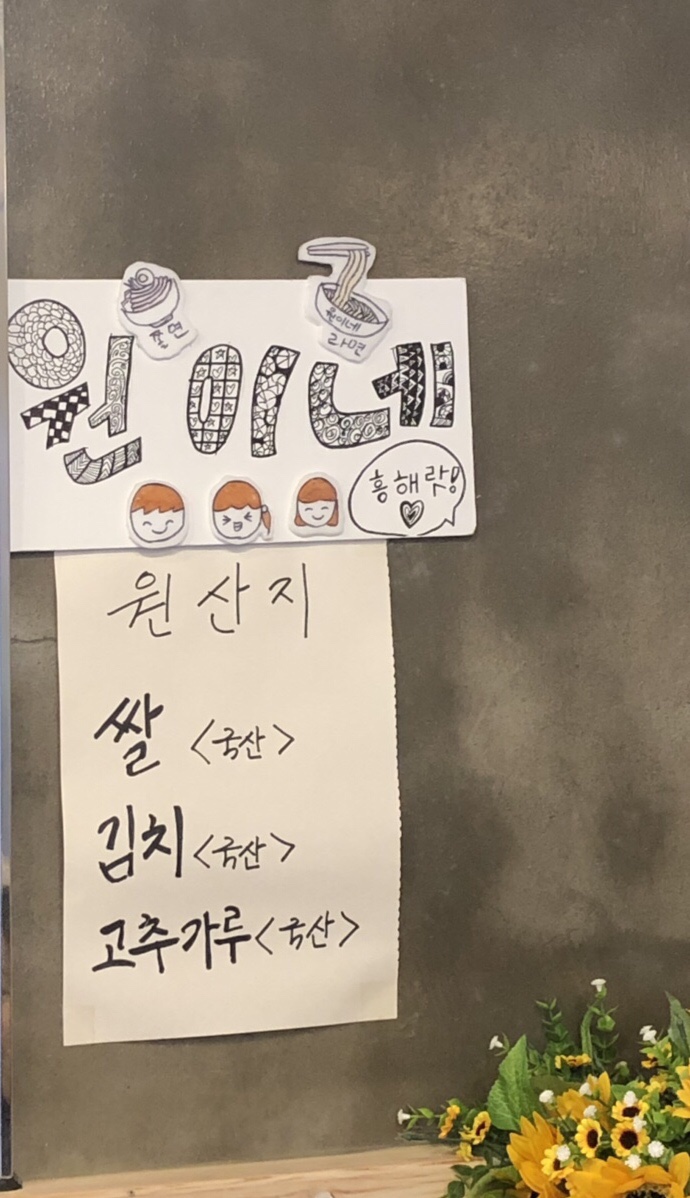 쫄면
원이네
라면
원이네
흥해랏!
원산지
쌀 <국산>
김치 <국산>
고추가루 <국산>